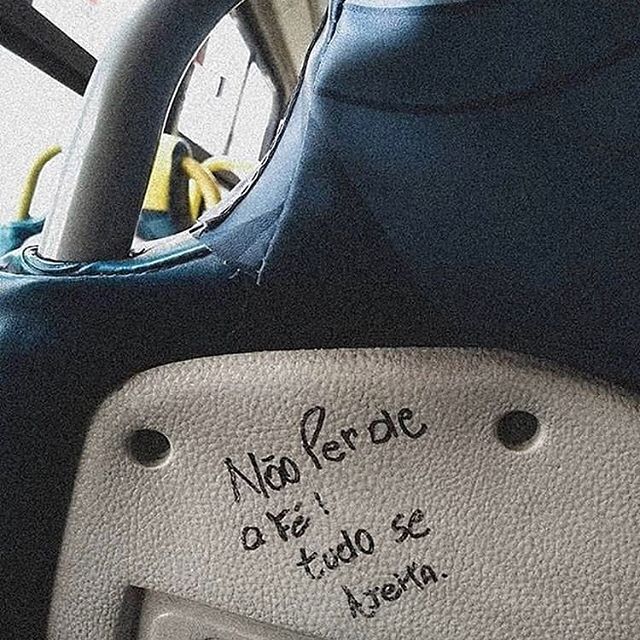 Não Perde
a Fé!
tudo se
Ajeita.